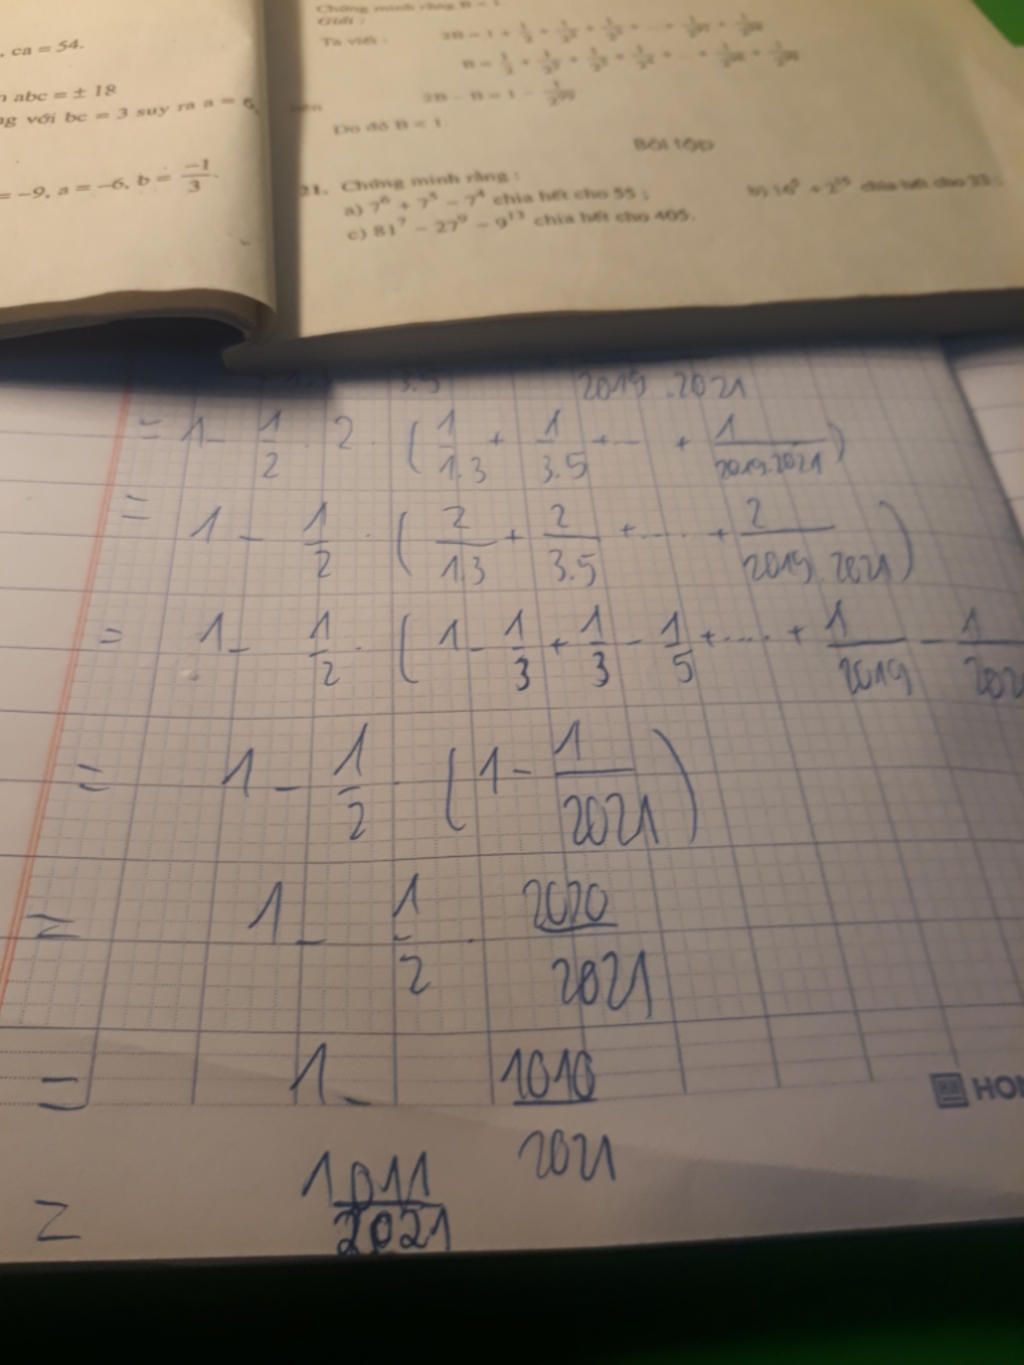 , ca = 54.
abc = ± 18
ng với bc = 3 suy ra a = 6,
= −9, a = −6, b = −1/3.
Chứng minh rằng B < 1
Giải :
Ta viết : 2B = 1 + 1/2 + 1/2² + 1/2³ + ... +
B = 1/2 + 1/2² + 1/2³ + 1/2⁴ + ... +
nên 2B − B = 1 −
Do đó B < 1.
Bài tập
21. Chứng minh rằng :
a) 7⁶ + 7⁵ − 7⁴ chia hết cho 55 ; b) 16⁵ + 2¹⁵ chia hết cho 33 ;
c) 81⁷ − 27⁹ − 9¹³ chia hết cho 405.
3.5 2019.2021
= 1 - 1/2 . 2 . (1/1.3 + 1/3.5 + ... + 1/2019.2021)
= 1 - 1/2 . (2/1.3 + 2/3.5 + .... + 2/2019.2021)
= 1 - 1/2 . (1 - 1/3 + 1/3 - 1/5 + .... + 1/2019 - 1/202
= 1 - 1/2 . (1 - 1/2021)
= 1 - 1/2 . 2020/2021
= 1 - 1010/2021
= 1011/2021
HON